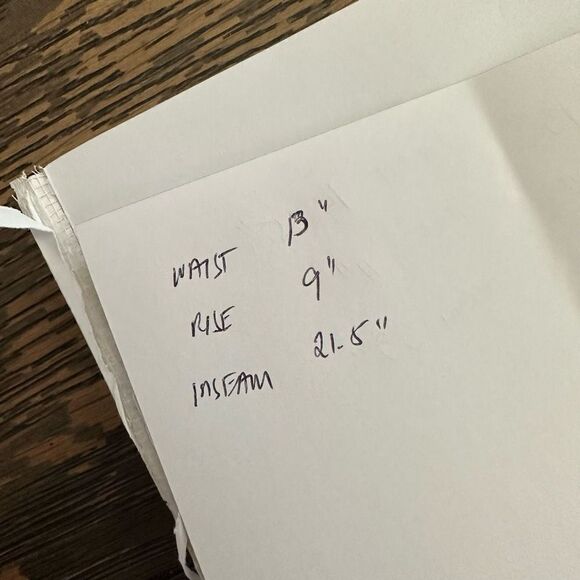 WAIST 13"
RISE 9"
INSEAM 21.5"